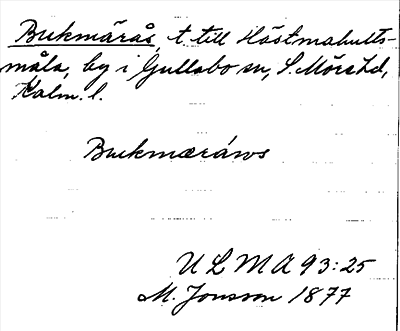 Bukmärås, t. till Hästmahults-
måla, by i Gullabo sn, S. Möre hd,
Kalm. l.
Bukmæráws
ULMA 93:25
M. Jonsson 1877